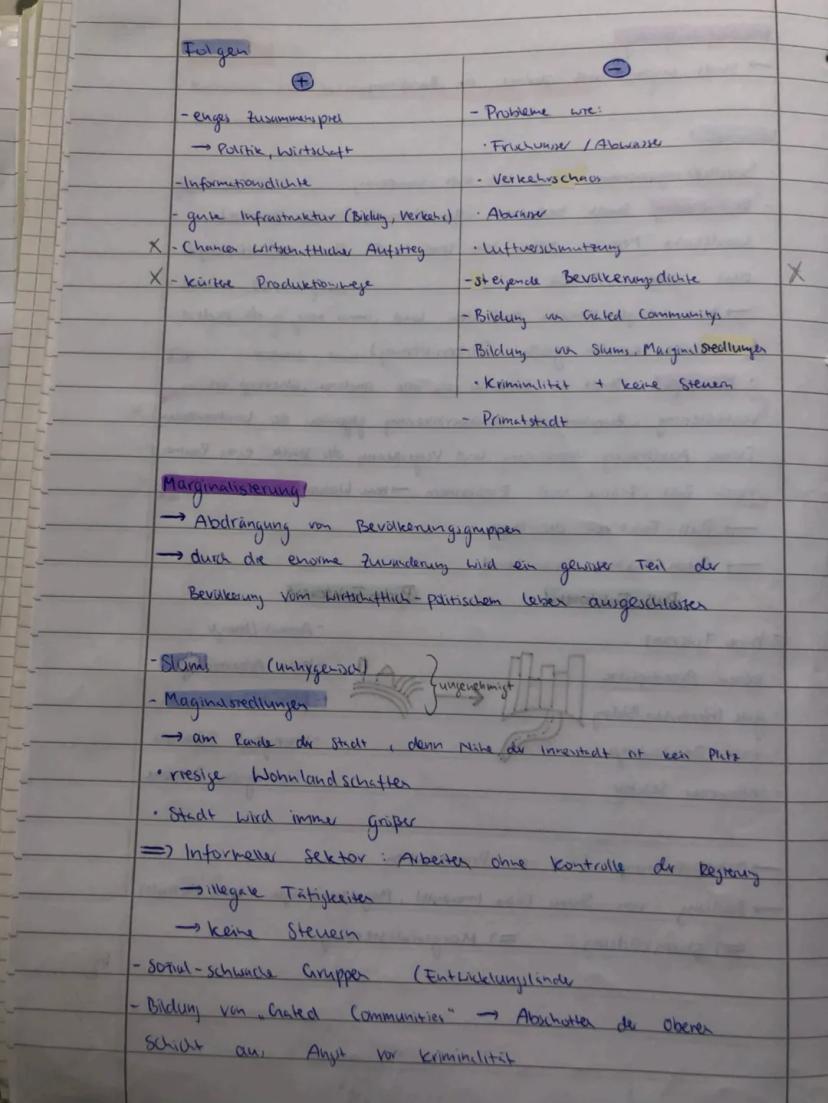 Folgen
+
- enges Zusammenspiel
→ Politik, Wirtschaft
- Informationsdichte
- gute Infrastruktur (Bildung, Verkehr)
X - Chancen wirtschaftlicher Aufstieg
X - kürzere Produktionswege
-
- Probleme wie:
· Frischwasser / Abwasser
· Verkehrschaos
· Abwasser
· Luftverschmutzung
- steigende Bevölkerungsdichte X
- Bildung von Gated Communitys
- Bildung von Slums, Marginalsiedlungen
· Kriminalität + keine Steuern
- Primatstadt
Marginalisierung
→ Abdrängung von Bevölkerungsgruppen
→ durch die enorme Zuwanderung wird ein gewisser Teil der
Bevölkerung vom wirtschaftlich-politischem leben ausgeschlossen
- Slums (unhygenisch) } ungenehmigt
- Maginalsiedlungen
→ am Rande der Stadt, denn Nähe der Innenstadt ist kein Platz
· riesige Wohnlandschaften
· Stadt wird immer größer
⇒ Informeller Sektor: Arbeiten ohne Kontrolle der Regierung
→ illegale Tätigkeiten
→ keine Steuern
- Sozial-schwache Gruppen (Entwicklungsländer
- Bildung von „Gated Communities" → Abschotten der oberen
Schicht aus Angst vor Kriminalität